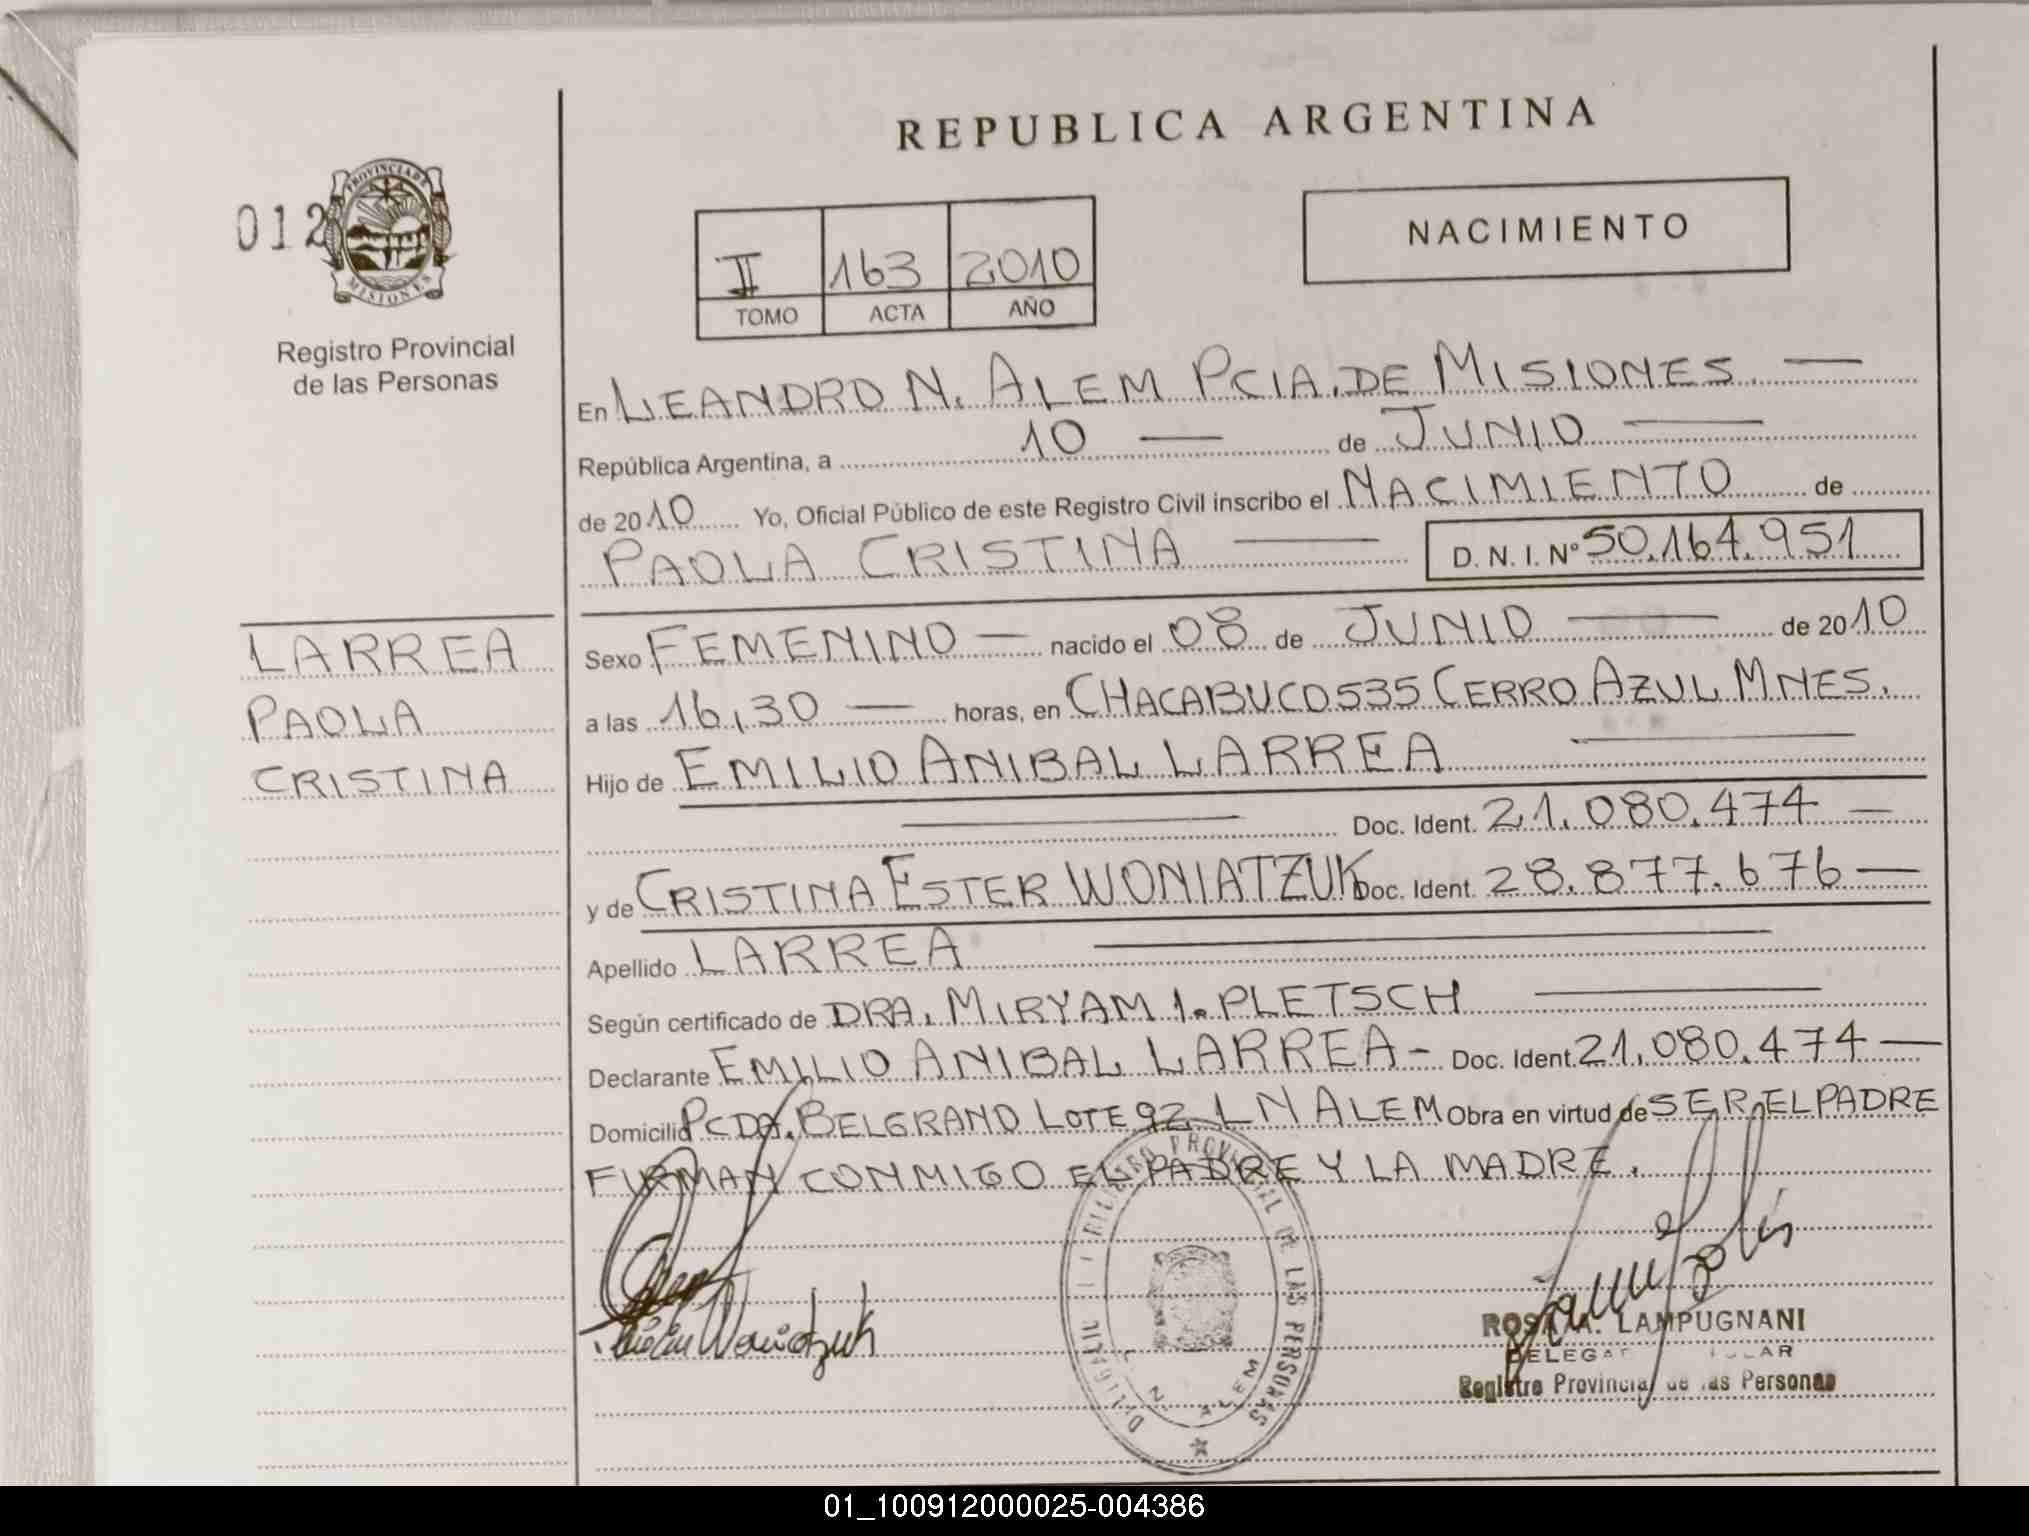 REPUBLICA ARGENTINA
012
PROVINCIA DE
MISIONES
Registro Provincial
de las Personas
NACIMIENTO
II 163 2010
TOMO ACTA AÑO
En LEANDRO N. ALEM PCIA. DE MISIONES. —
República Argentina, a 10 — de JUNIO —
de 2010 Yo, Oficial Público de este Registro Civil inscribo el NACIMIENTO de
PAOLA CRISTINA — D. N. I. Nº 50.164.951
LARREA
PAOLA
CRISTINA
Sexo FEMENINO — nacido el 08 de JUNIO — de 2010
a las 16,30 — horas, en CHACABUCO 535 CERRO AZUL MNES.
Hijo de EMILIO ANIBAL LARREA —
— Doc. Ident. 21.080.474 —
y de CRISTINA ESTER WONIATZUK Doc. Ident. 28.877.676 —
Apellido LARREA —
Según certificado de DRA. MIRYAM I. PLETSCH —
Declarante EMILIO ANIBAL LARREA - Doc. Ident. 21.080.474 —
Domicilio PCDA. BELGRANO LOTE 92 L N ALEM Obra en virtud de SER EL PADRE
FIRMAN CONMIGO EL PADRE Y LA MADRE.
REGISTRO PROVINCIAL DE LAS PERSONAS
N. ALEM
Woniatzuk
ROSA A. LAMPUGNANI
Registro Provincial de las Personas
01_100912000025-004386